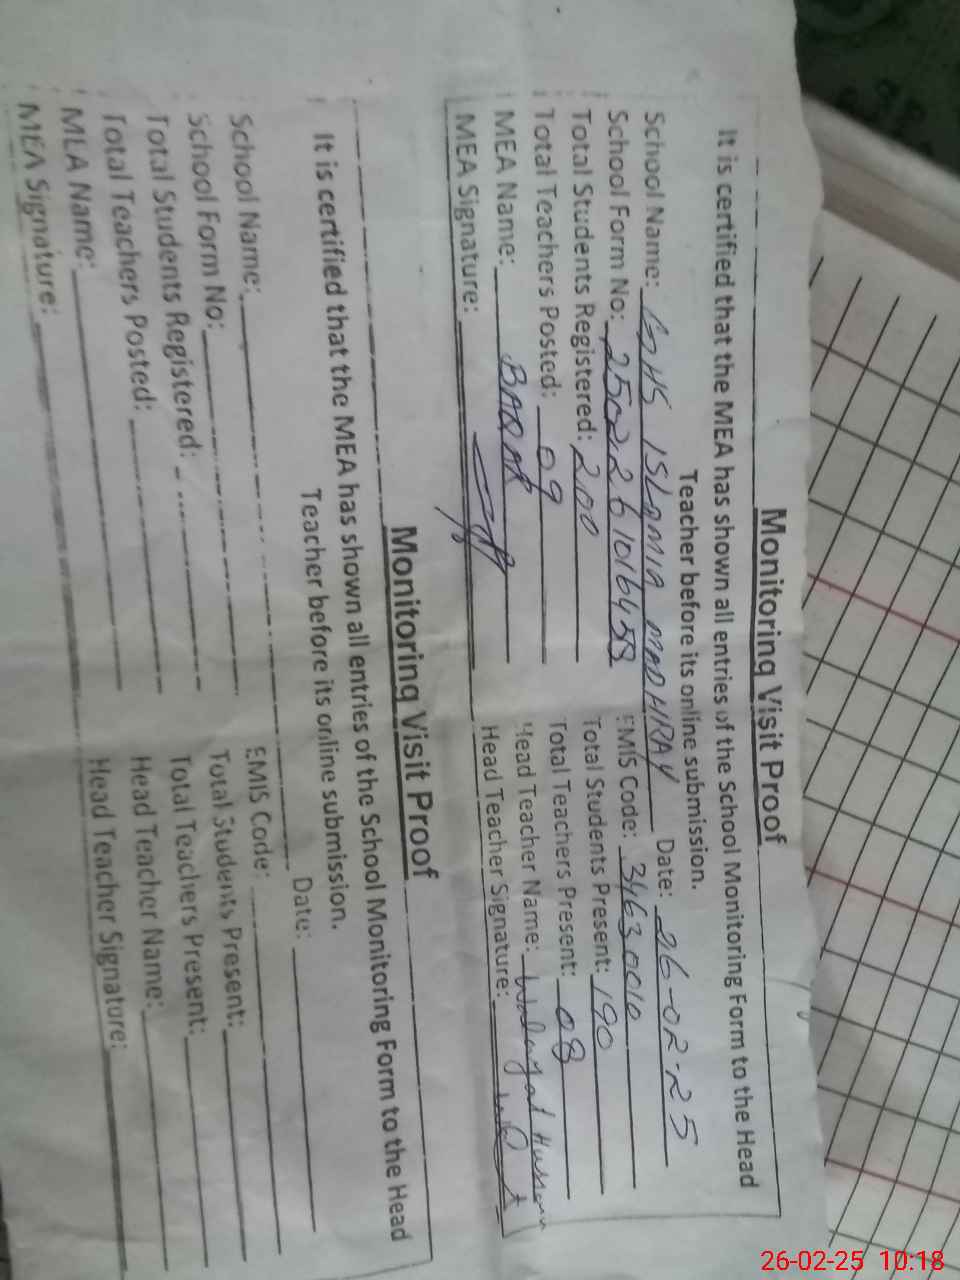 Monitoring Visit Proof
It is certified that the MEA has shown all entries of the School Monitoring Form to the Head
Teacher before its online submission.
School Name: GHS ISLAMIA MADHIRAY Date: 26-02-25
School Form No: EMIS Code: 34630010
Total Students Registered: 200 Total Students Present: 190
Total Teachers Posted: 09 Total Teachers Present: 08
MEA Name: BAQAR Head Teacher Name: Walayat Hussain
MEA Signature: Head Teacher Signature:
Monitoring Visit Proof
It is certified that the MEA has shown all entries of the School Monitoring Form to the Head
Teacher before its online submission.
School Name: Date:
School Form No: EMIS Code:
Total Students Registered: Total Students Present:
Total Teachers Posted: Total Teachers Present:
MEA Name: Head Teacher Name:
MEA Signature: Head Teacher Signature:
26-02-25 10:18